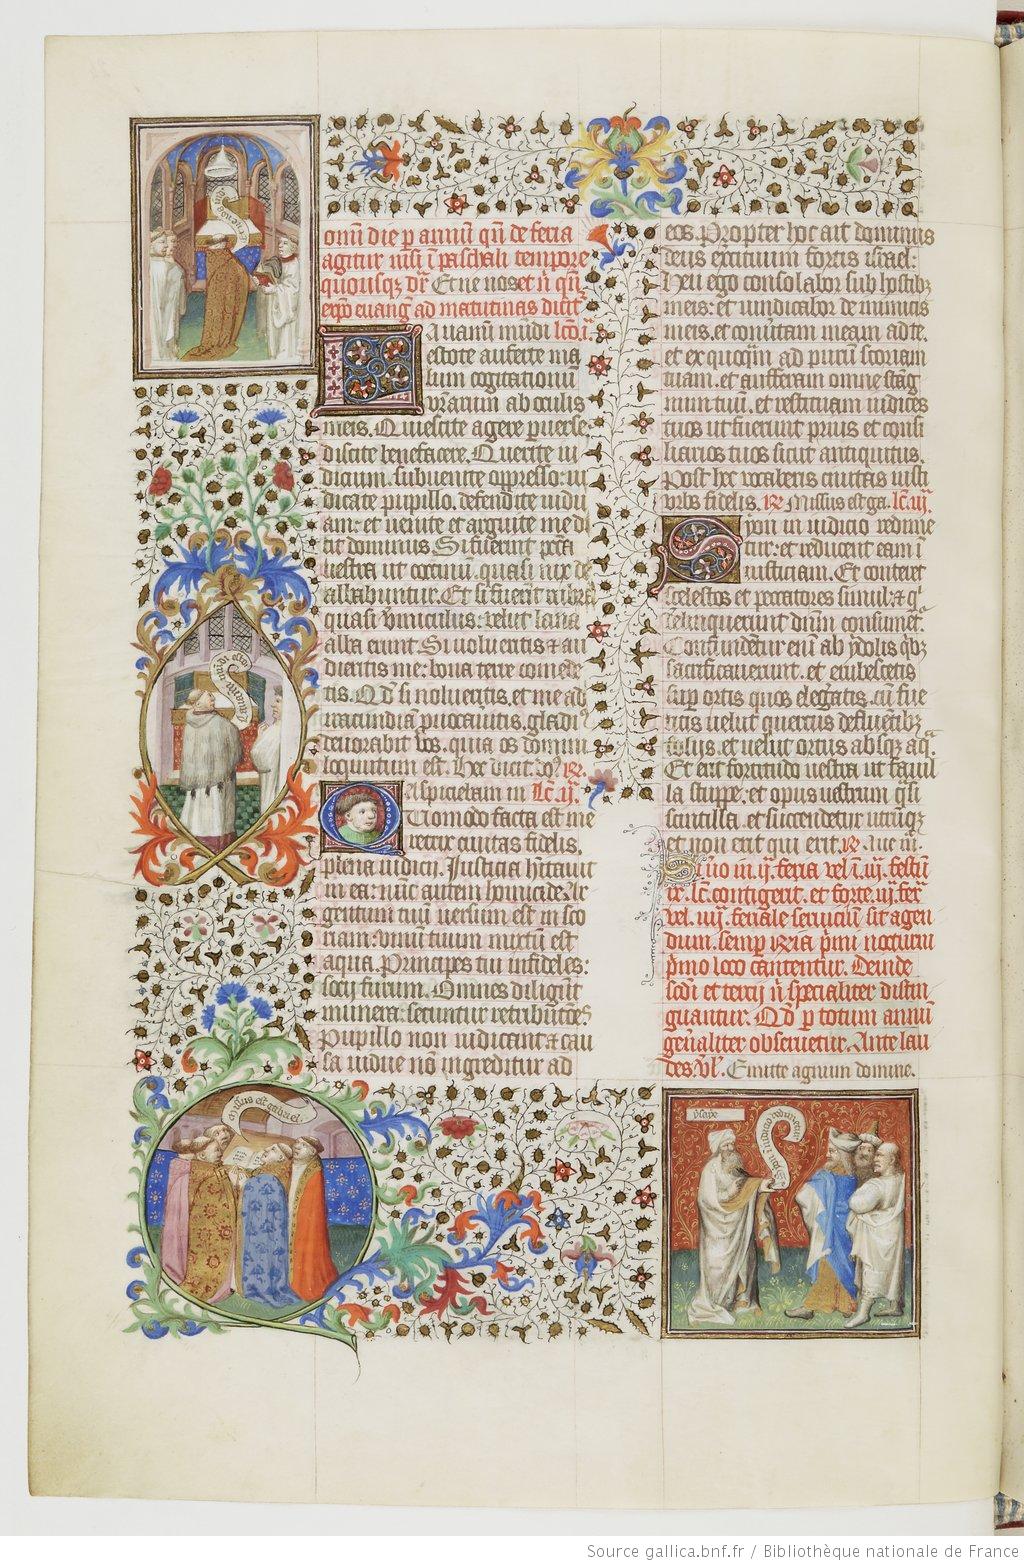 omni die p annu qn de feria
agitur nisi i paschali tempore
quousqz dr Et ne nos et n qn
expo euang ad matutinas dicit
Lauamini mudi lco i
estote auferte ma
lum cogitationu
vrarum ab oculis
meis. Quiescite agere peruerse
discite benefacere. Querite iu
dicium. subuenite oppresso: iu
dicate pupillo. defendite uidu
am: et uenite et arguite me di
cit dominus Si fuerint pcta
uestra ut coccinu. quasi nix de
albabuntur. Et si fuerit rubra
quasi vmiculus: velut lana
alba erunt. Si uolueritis & au
dieritis me: bona terre comede
tis. Qd si nolueritis. et me ad
iracundia puocaueritis. gladi
deuorabit vos. quia os domini
loquutum est. Hec dicit do R
Aspiciebam in Lc ij
Quomodo facta est me
retrix ciuitas fidelis.
plena iudicij. Justicia hitauit
in ea: nuc autem homicide. Ar
gentum tuu uersum est in sco
riam: vinu tuum mixtu est
aqua. Principes tui infideles:
socij furum. Omnes diligut
munera: secuntur retributoes
Pupillo non iudicant & cau
sa uidue non ingreditur ad
eos. Propter hoc ait dominus
deus exercituum fortis israel:
Heu ego consolabor sup hostibz
meis: et uindicabor de inimicis
meis. et conuertam meam ad te.
et excoqua ad puru scoriam
tuam. et aufferam omne stag
num tuu. et restituam iudices
tuos ut fuerunt prius et consi
liarios tuos sicut antiquitus.
Post hec vocaberis ciuitas iusti
vrbs fidelis. R Missus est ga. lc iij
Syon in iudicio redime
tur: et reducent eam i
iusticiam. Et conteret
scelestos et peccatores simul: & q
dereliquerunt dnm consumet.
Confundetur eni ab ydolis qbz
sacrificauerunt. et erubescetis
sup ortis quos elegatis. cu fue
ritis velut quercus defluetibz
folijs. et velut ortus absqz aq.
Et erit fortitudo uestra ut fauil
la stuppe: et opus uestrum qsi
scintilla. et succendetur utruqz
et non erit qui ext. R Aue m
Si uo in ij feria vel i iij festu
ix. lc contigerit. et forte. iij fer
vel. iiij feriale seruiciu sit agen
dum. semp Rria pmi nocturni
pmo loco cantentur. Deinde
scdi et tercij n specialiter distin
guantur. Qd p totum annu
genaliter obseruetur. Ante lau
des vl. Emitte agnum domine.
aspiciebam in
missus est gabriel.
ysaye
syon i iudicio redimetur